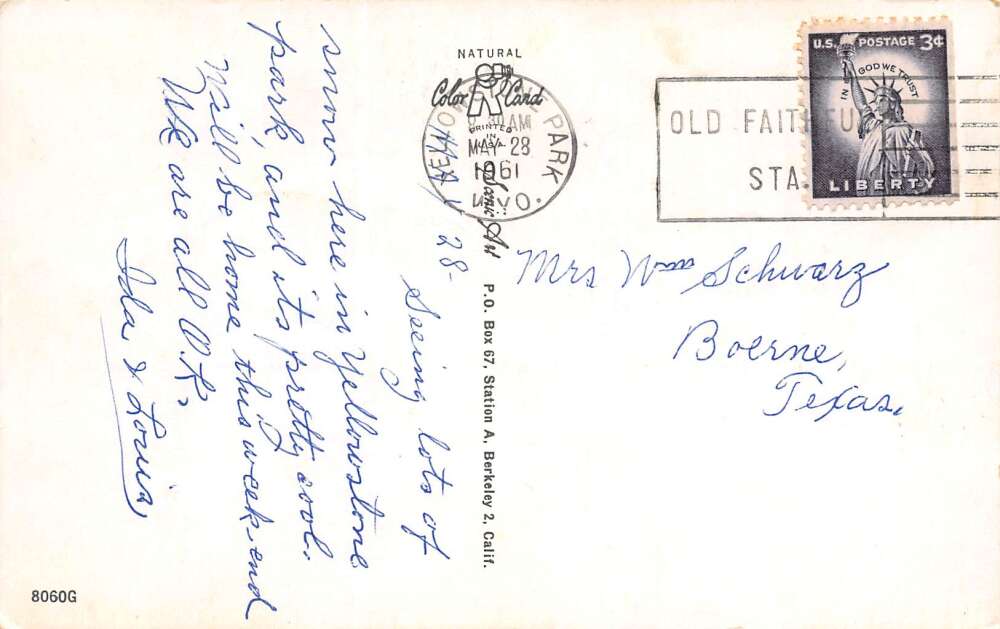 May 28-
Seeing lots of
snow here in Yellowstone
park, and its pretty cool.
Will be home this week-end
We are all O.K.
Ida & Louis,
NATURAL
Color Card
PRINTED
IN
U.S.A.
Scenic Art
P.O. Box 67, Station A, Berkeley 2, Calif.
PARK
AM
MAY 28
1961
WYO.
OLD FAITHFUL
STA.
U.S. POSTAGE 3¢
IN GOD WE TRUST
LIBERTY
Mrs Wm Schwarz
Boerne,
Texas.
8060G